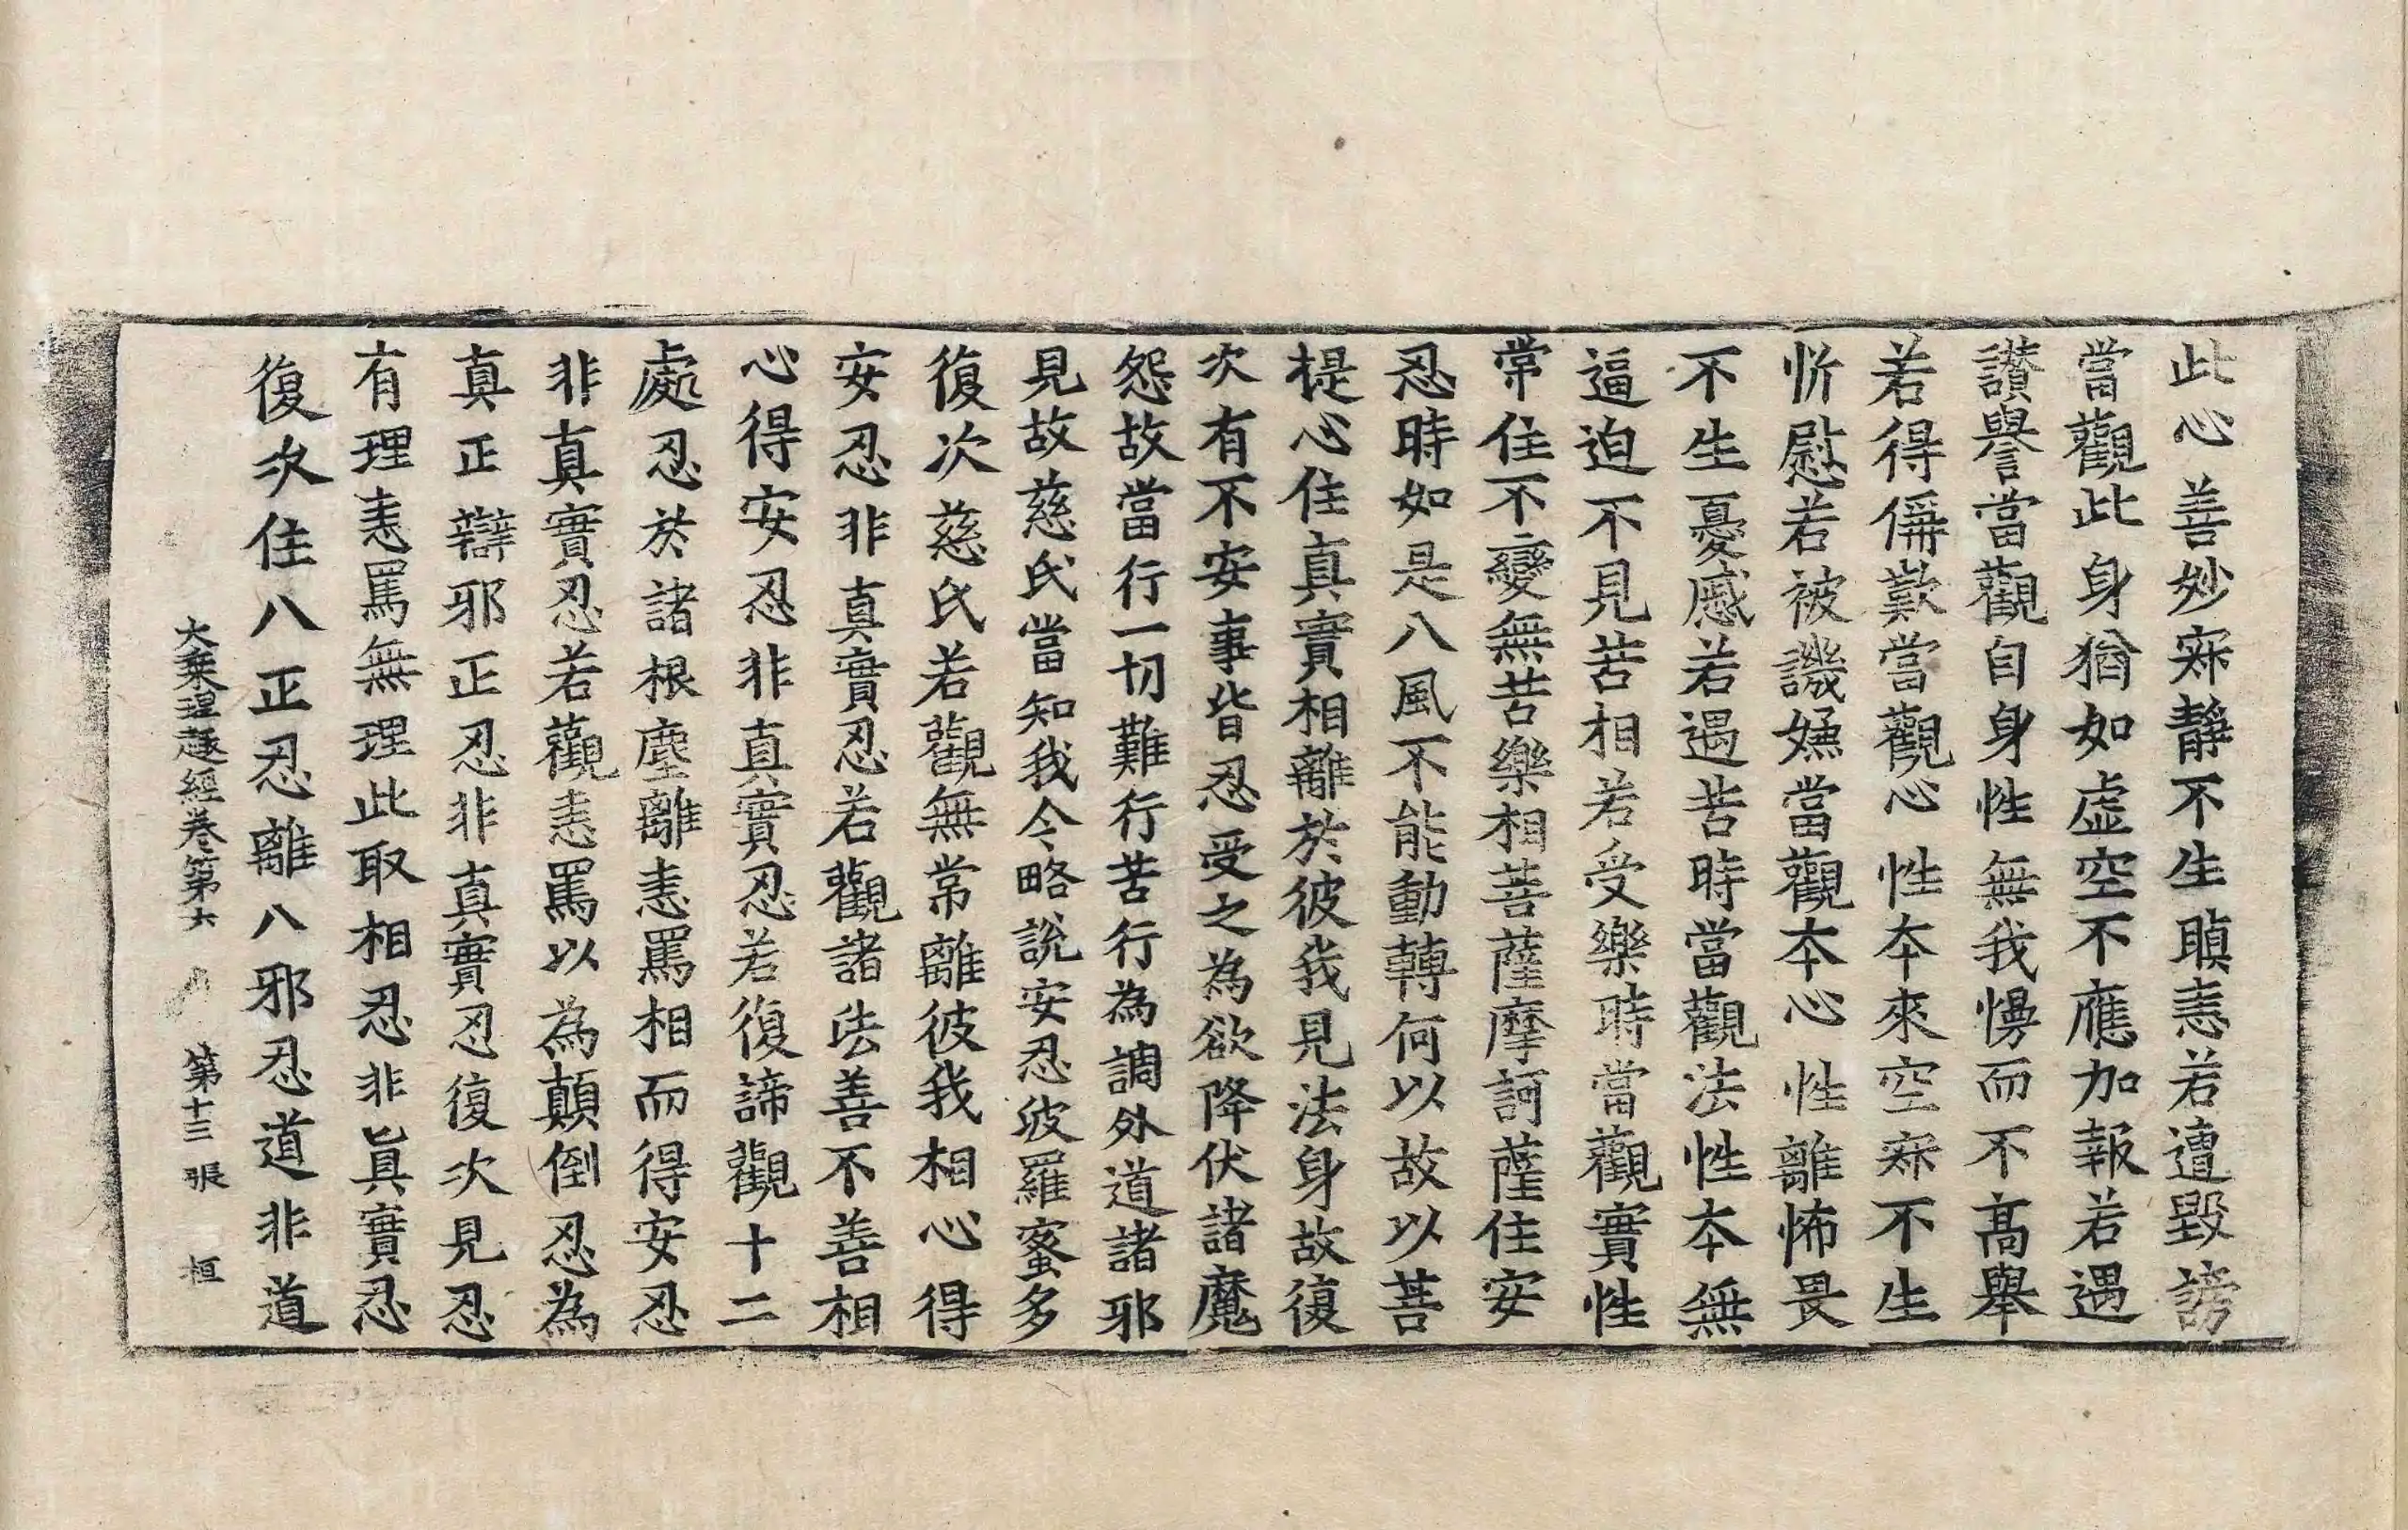 此心善妙寂靜不生瞋恚若遭毀謗
當觀此身猶如虛空不應加報若遇
讃譽當觀自身性無我慢而不高舉
若得偁歎當觀心性本來空寂不生
忻慰若被譏嫌當觀本心性離怖畏
不生憂慼若遇苦時當觀法性本無
逼迫不見苦相若受樂時當觀實性
常住不變無苦樂相菩薩摩訶薩住安
忍時如是八風不能動轉何以故以菩
提心住真實相離於彼我見法身故復
次有不安事皆忍受之為欲降伏諸魔
怨故當行一切難行苦行為調外道諸邪
見故慈氏當知我今略說安忍波羅蜜多
復次慈氏若觀無常離彼我相心得
安忍非真實忍若觀諸法善不善相
心得安忍非真實忍若復諦觀十二
處忍於諸根塵離恚罵相而得安忍
非真實忍若觀恚罵以為顛倒忍為
真正辯邪正忍非真實忍復次見忍
有理恚罵無理此取相忍非眞實忍
復次住八正忍離八邪忍道非道
大乘理趣經卷第六 第十三張 桓